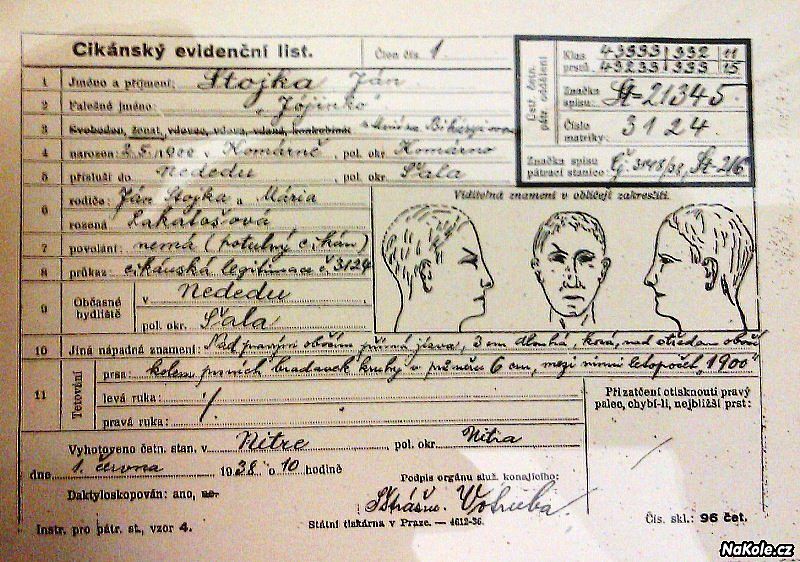 Cikánský evidenční list.
Člen čís. 1
1 Jméno a příjmení: Stojka Ján
2 Falešné jméno: „Jojinko“
3 Svoboden, ženat, vdovec, vdova, vdaná, s Mária
4 narozen 2.5. 1900 v Komárně, pol. okr. Komárno
5 přísluší do Nededu pol. okr. Šala
6 rodiče: Ján Stojka a Mária
rozená Lakatošová
7 povolání: nemá (potulný cikán)
8 průkaz: cikánská legitimace č. 3124
9 Občasné bydliště v Nededu
pol. okr. Šala
10 Jiná nápadná znamení: Nad pravým obočím přímá jizva, 3 cm dlouhá, nad středem obočí
11 Tetování prsa: kolem prsních bradavek kruhy v průměru 6 cm, mezi nimi letopočet „1900“
levá ruka:
pravá ruka:
Ústř. četn. pátr. oddělení
Klas. prstů. 43333 332 11
43233 333 15
Značka spisu: St-21345.
Číslo matriky: 3124
Značka spisu pátrací stanice: Čj. 3148/38, St-216
Viditelná znamení v obličeji zakreslit.
Při zatčení otisknouti pravý palec, chybí-li, nejbližší prst:
Vyhotoveno četn. stan. v Nitre pol. okr. Nitra
dne 1. června 1938 o 10 hodině
Podpis orgánu služ. konajícího:
Daktyloskopován: ano, ne.
Strážm. Votruba
Instr. pro pátr. st., vzor 4.
Státní tiskárna v Praze. — 4612-36.
Čís. skl.: 96 čet.
NaKole.cz